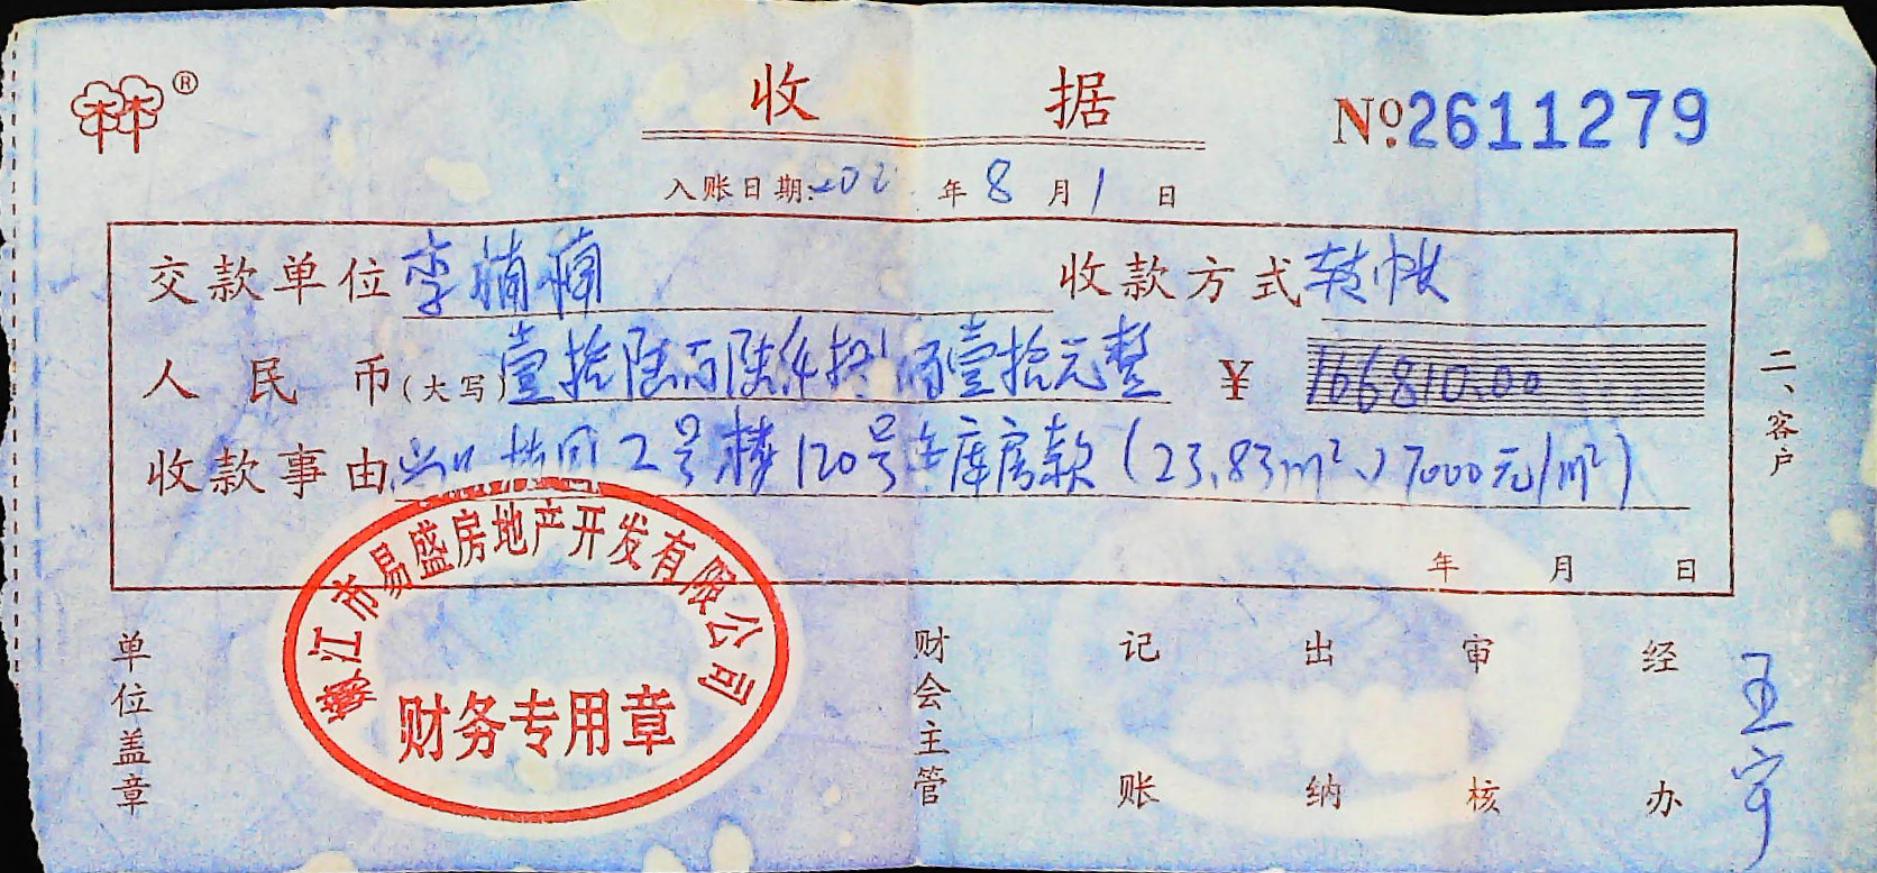 ®
收据
№2611279
入账日期:202 年8月1日
交款单位李楠楠 收款方式转帐
人民币(大写)壹拾陆万陆仟捌佰壹拾元整 ¥166810.00
收款事由 2号楼120号车库房款(23.83m²、7000元/m²)
年 月 日
二、客户
嫩江市易盛房地产开发有限公司
财务专用章
单位盖章 财会主管 记账 出纳 审核 经办 王宇